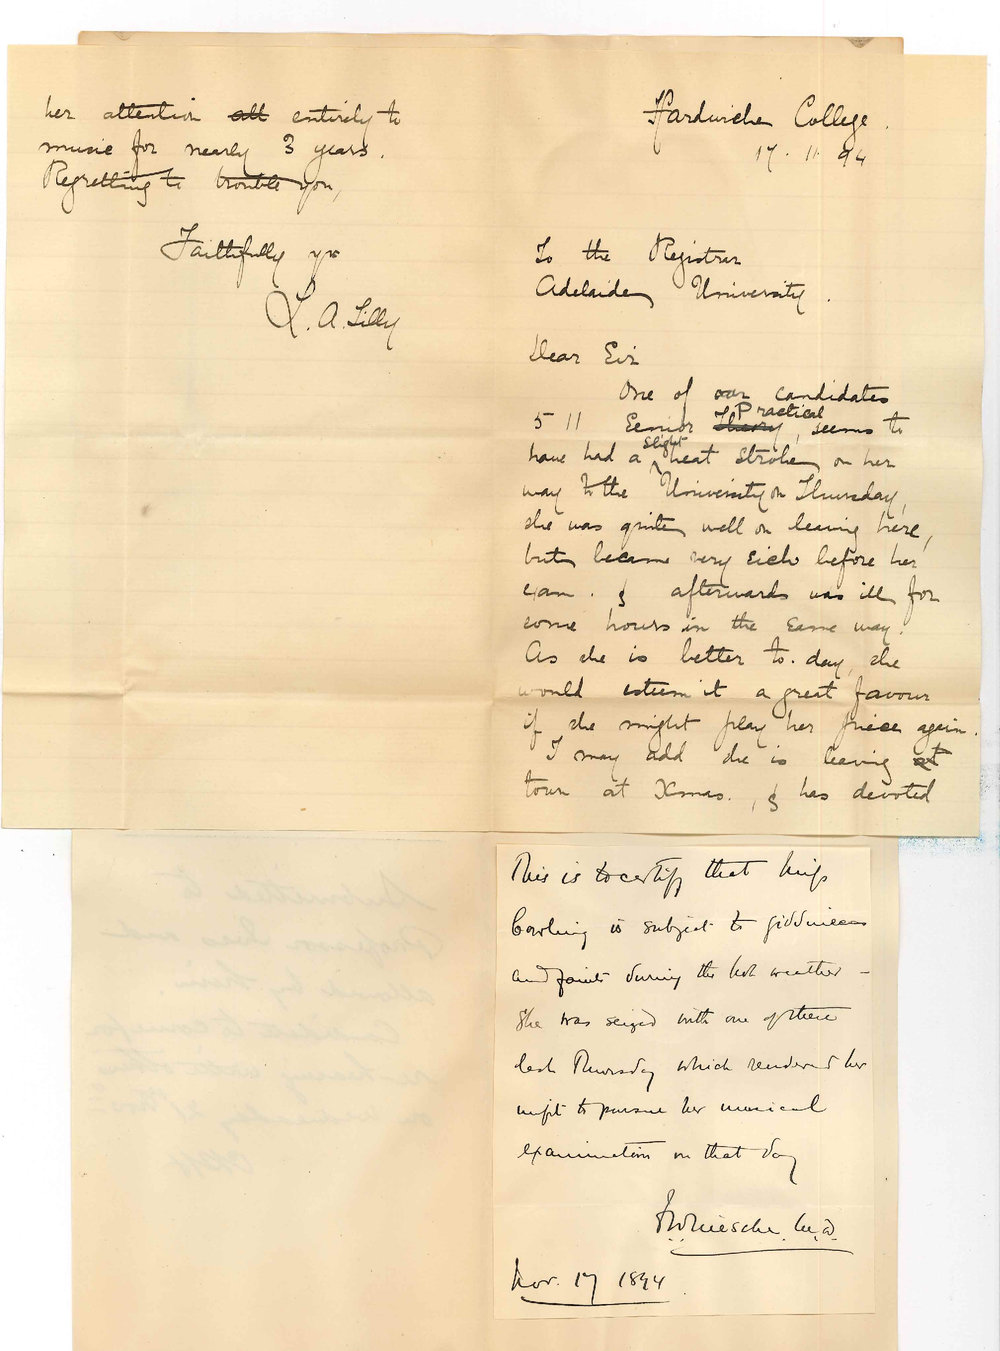 Hardwicke College.
17. 11. 94
To the Registrar
Adelaide University.
Dear Sir
One of our candidates
511 Senior Theory Practical, seems to
have had a slight heat stroke, on her
way to the University on Thursday,
she was quite well on leaving here,
but became very sick before her
exam. & afterwards was ill for
some hours in the same way.
As she is better to-day, she
would esteem it a great favour
if she might play her piece again.
I may add she is leaving
town at Xmas., & has devoted
her attention all entirely to
music for nearly 3 years.
Regretting to trouble you,
Faithfully yrs
L. A. Lilly
This is to certify that Miss
Cowling is subject to giddiness
and faints during the hot weather –
She was seized with one of these
last Thursday which rendered her
unfit to pursue her musical
examination on that day
Niesche. M.D.
Nov. 17 1894